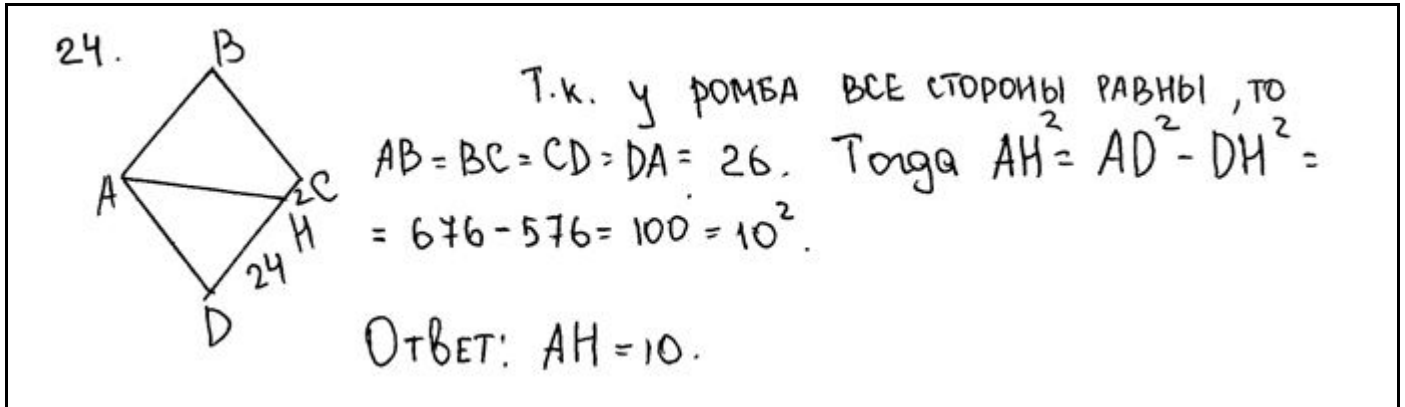 24.
B
A
C
2
H
24
D
Т.к. у ромба все стороны равны, то
AB = BC = CD = DA = 26. Тогда AH² = AD² - DH² =
= 676 - 576 = 100 = 10².
Ответ: AH = 10.